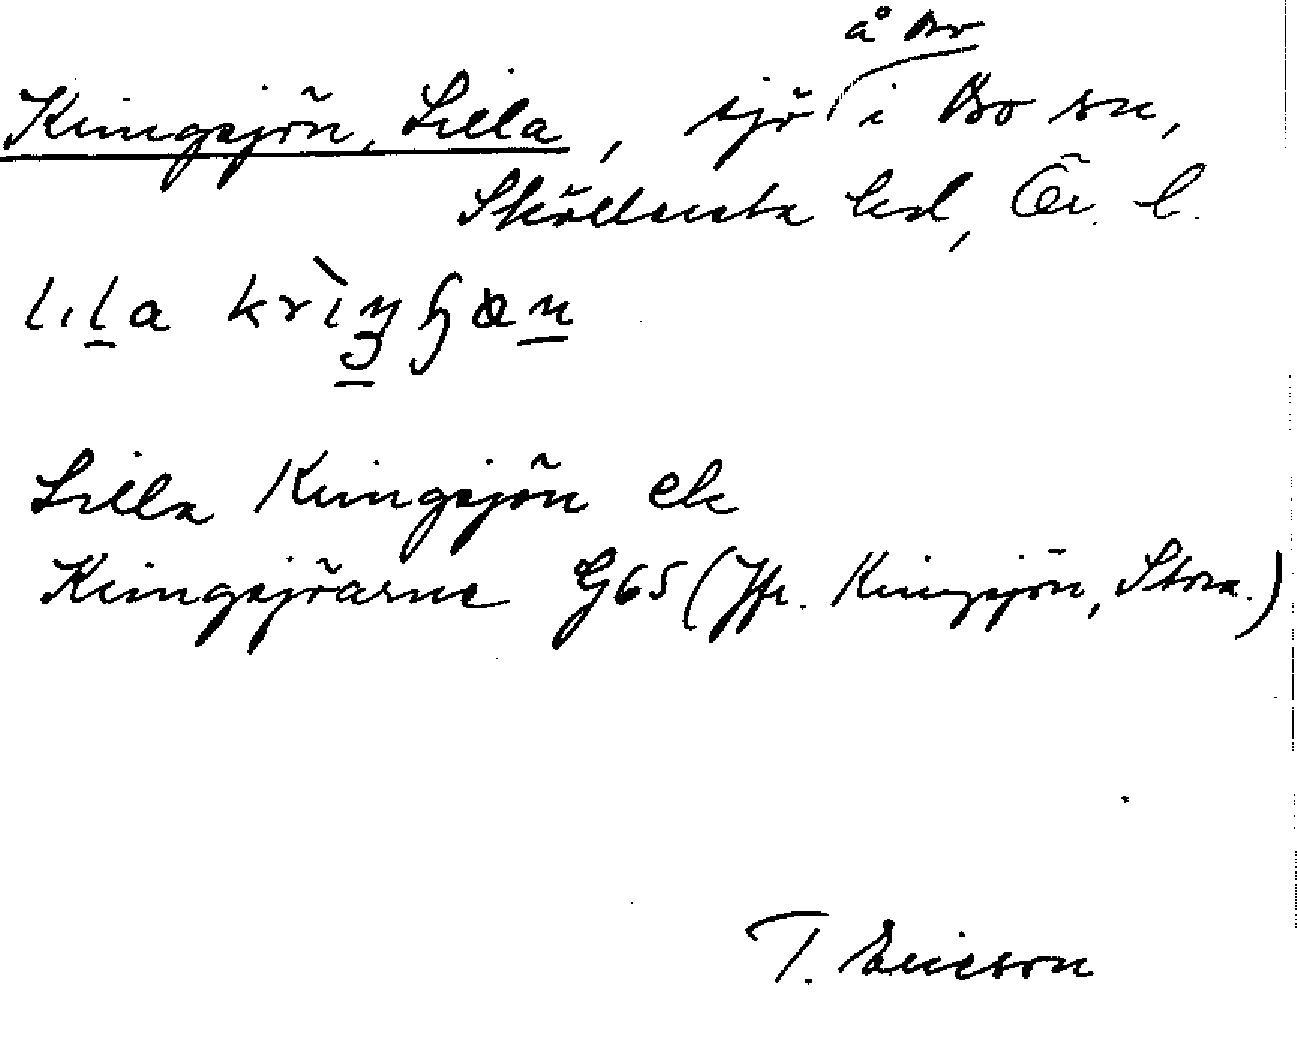 å Br
Kringsjön, Lilla, sjö i Bo sn,
Sköllersta hd, Ör. l.
Lilla Kringsjön ek
Kringsjöarne G65 (Jfr. Kringsjön, Stora.)
T. Ericson